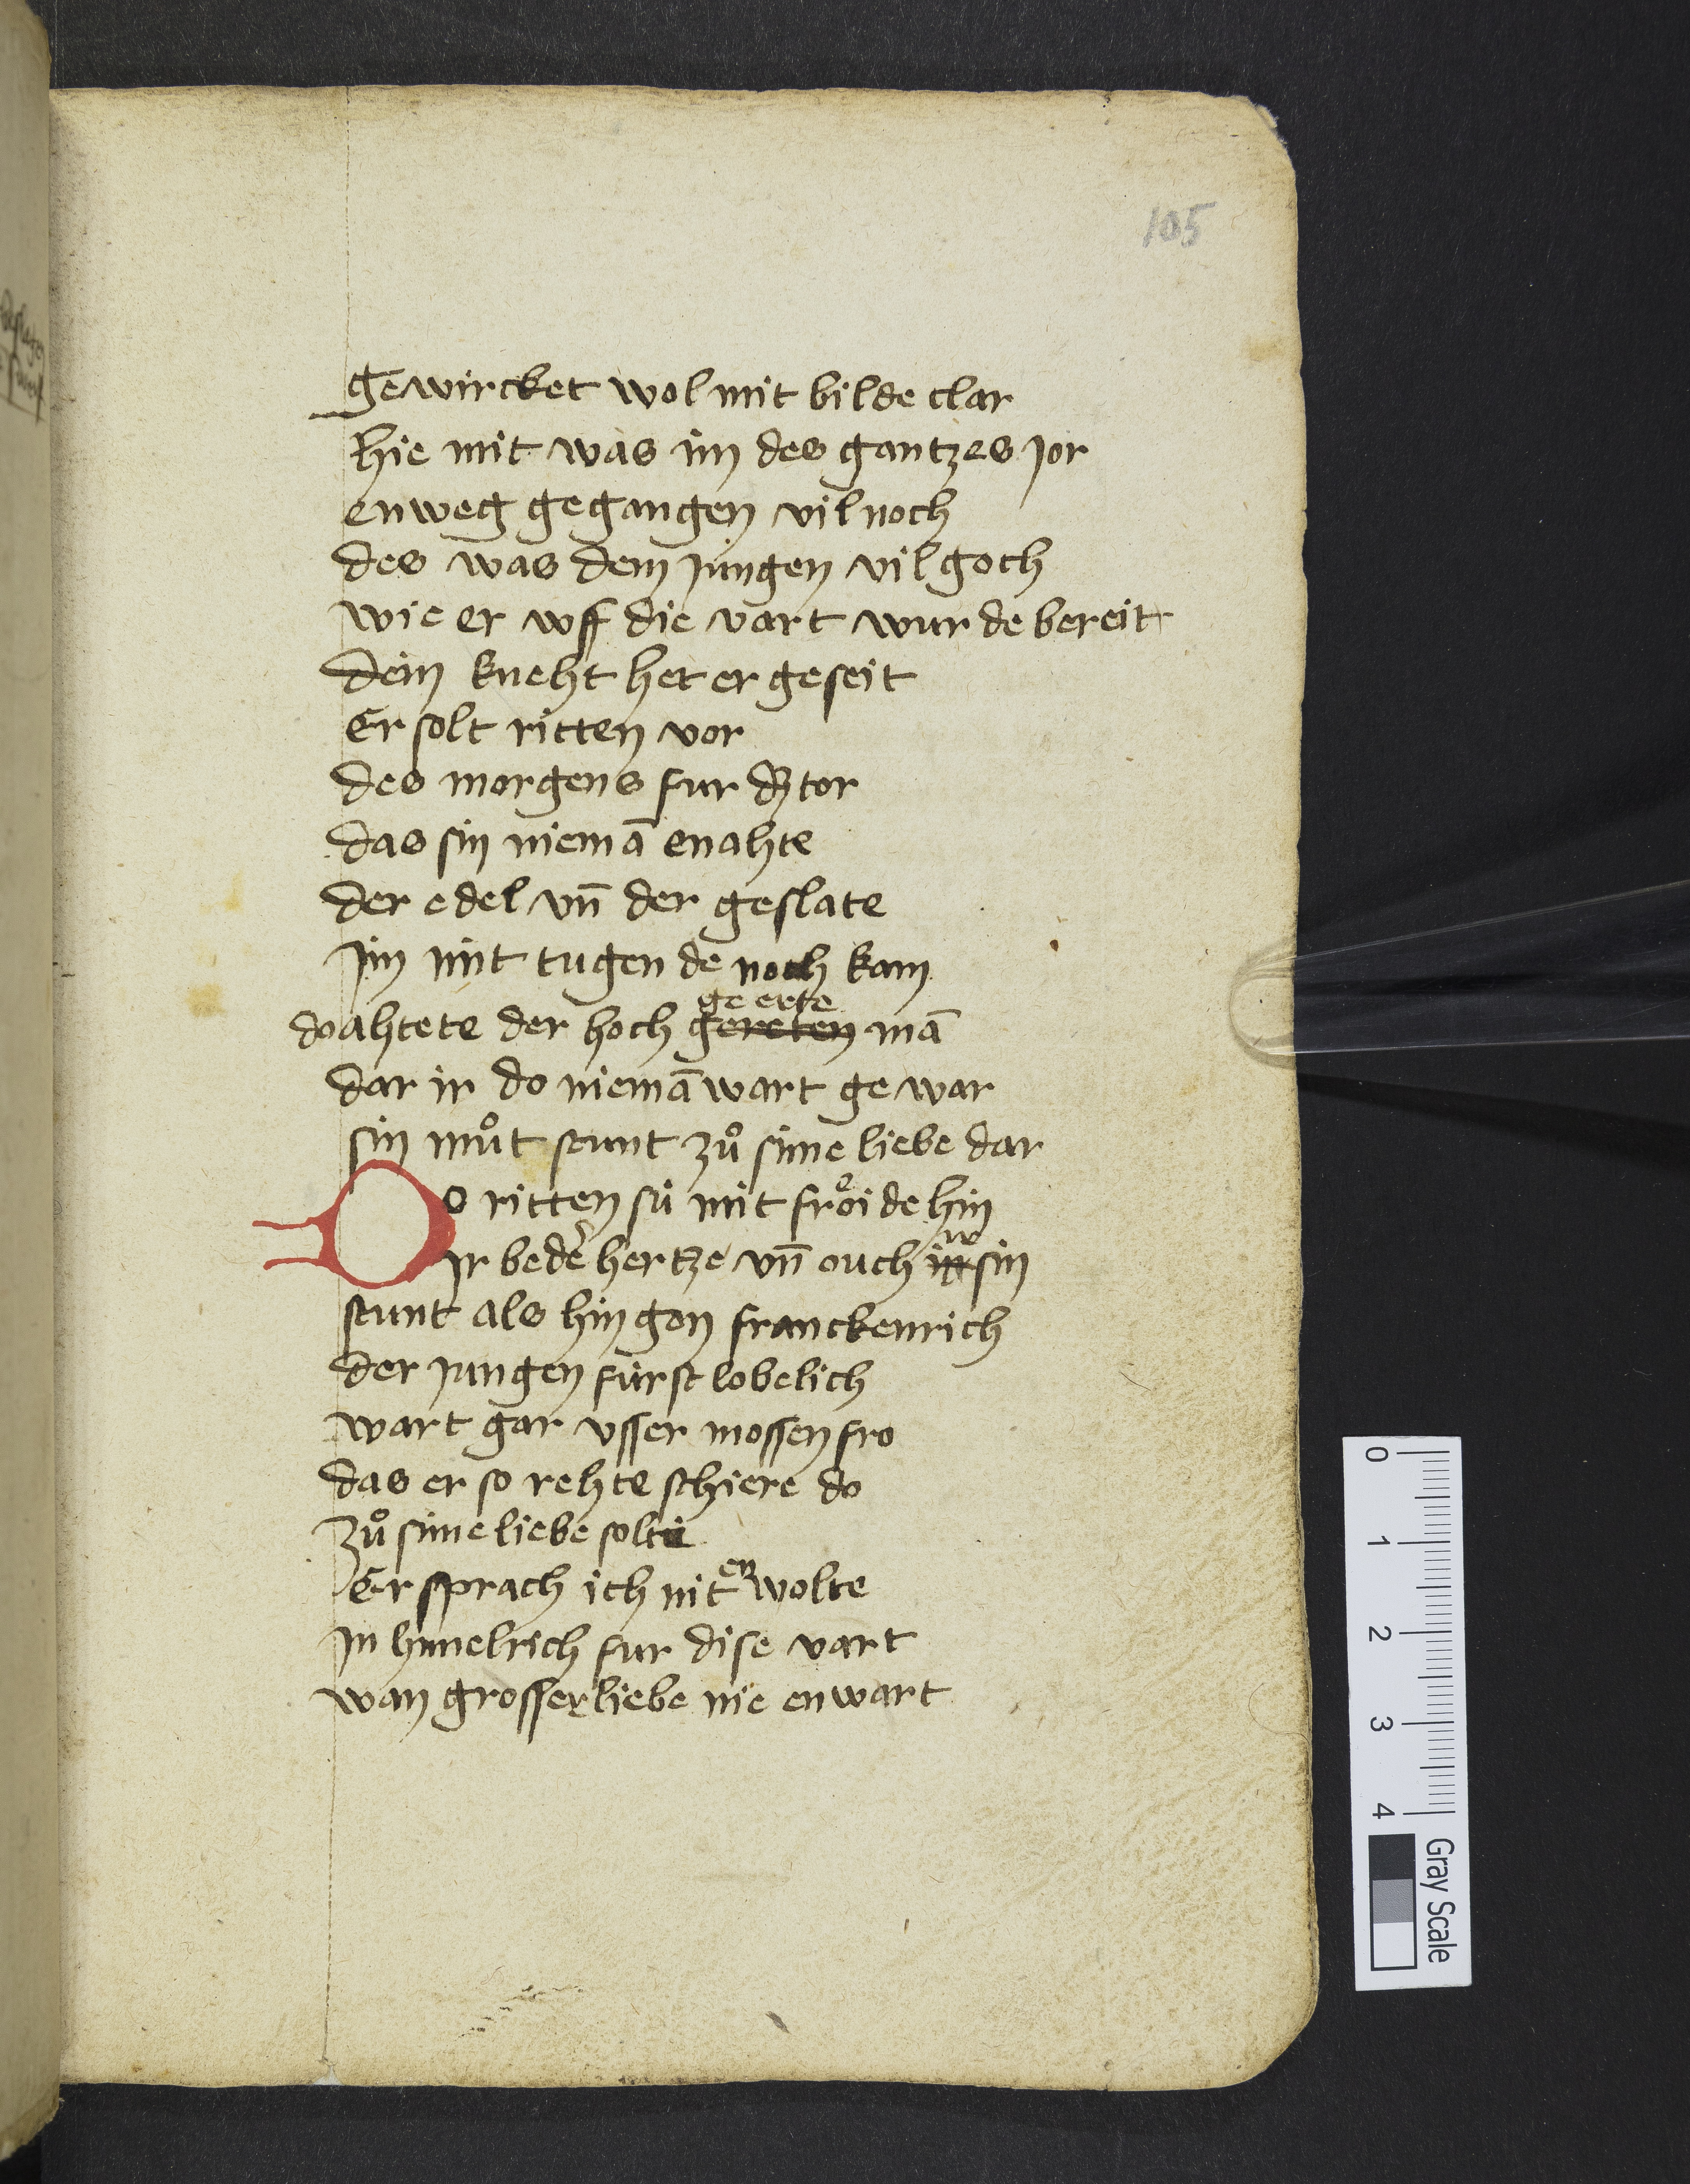 105
gewircket wol mit bilde clar
hie mit was im des gantzes jor
enweg gegangen vil noch
des was dem jungen vil goch
wie er vff die vart wurde bereit
dem kneht het er geseit
Er solt ritten vor
des morgens fur dz tor
das sin niemā enahte
der edel vn̄ der geslate
jm mit tugende noch kam
do ahtete der hoch geerte gereten mā
dar ir do niemā wart gewar
sin můt stunt zů sime liebe dar
Do ritten sú mit frőide hin
jr beder hertze vn̄ ouch ir sin
stunt als hin gen franckenrich
der jungen fürst lobelich
wart gar vsser mossen fro
das er so rehte schiere do
zů sime liebe solte
Er sprach ich nit en wolte
jn himelrich fur dise vart
wan grosser liebe nie enwart
0 1 2 3 4
Gray Scale